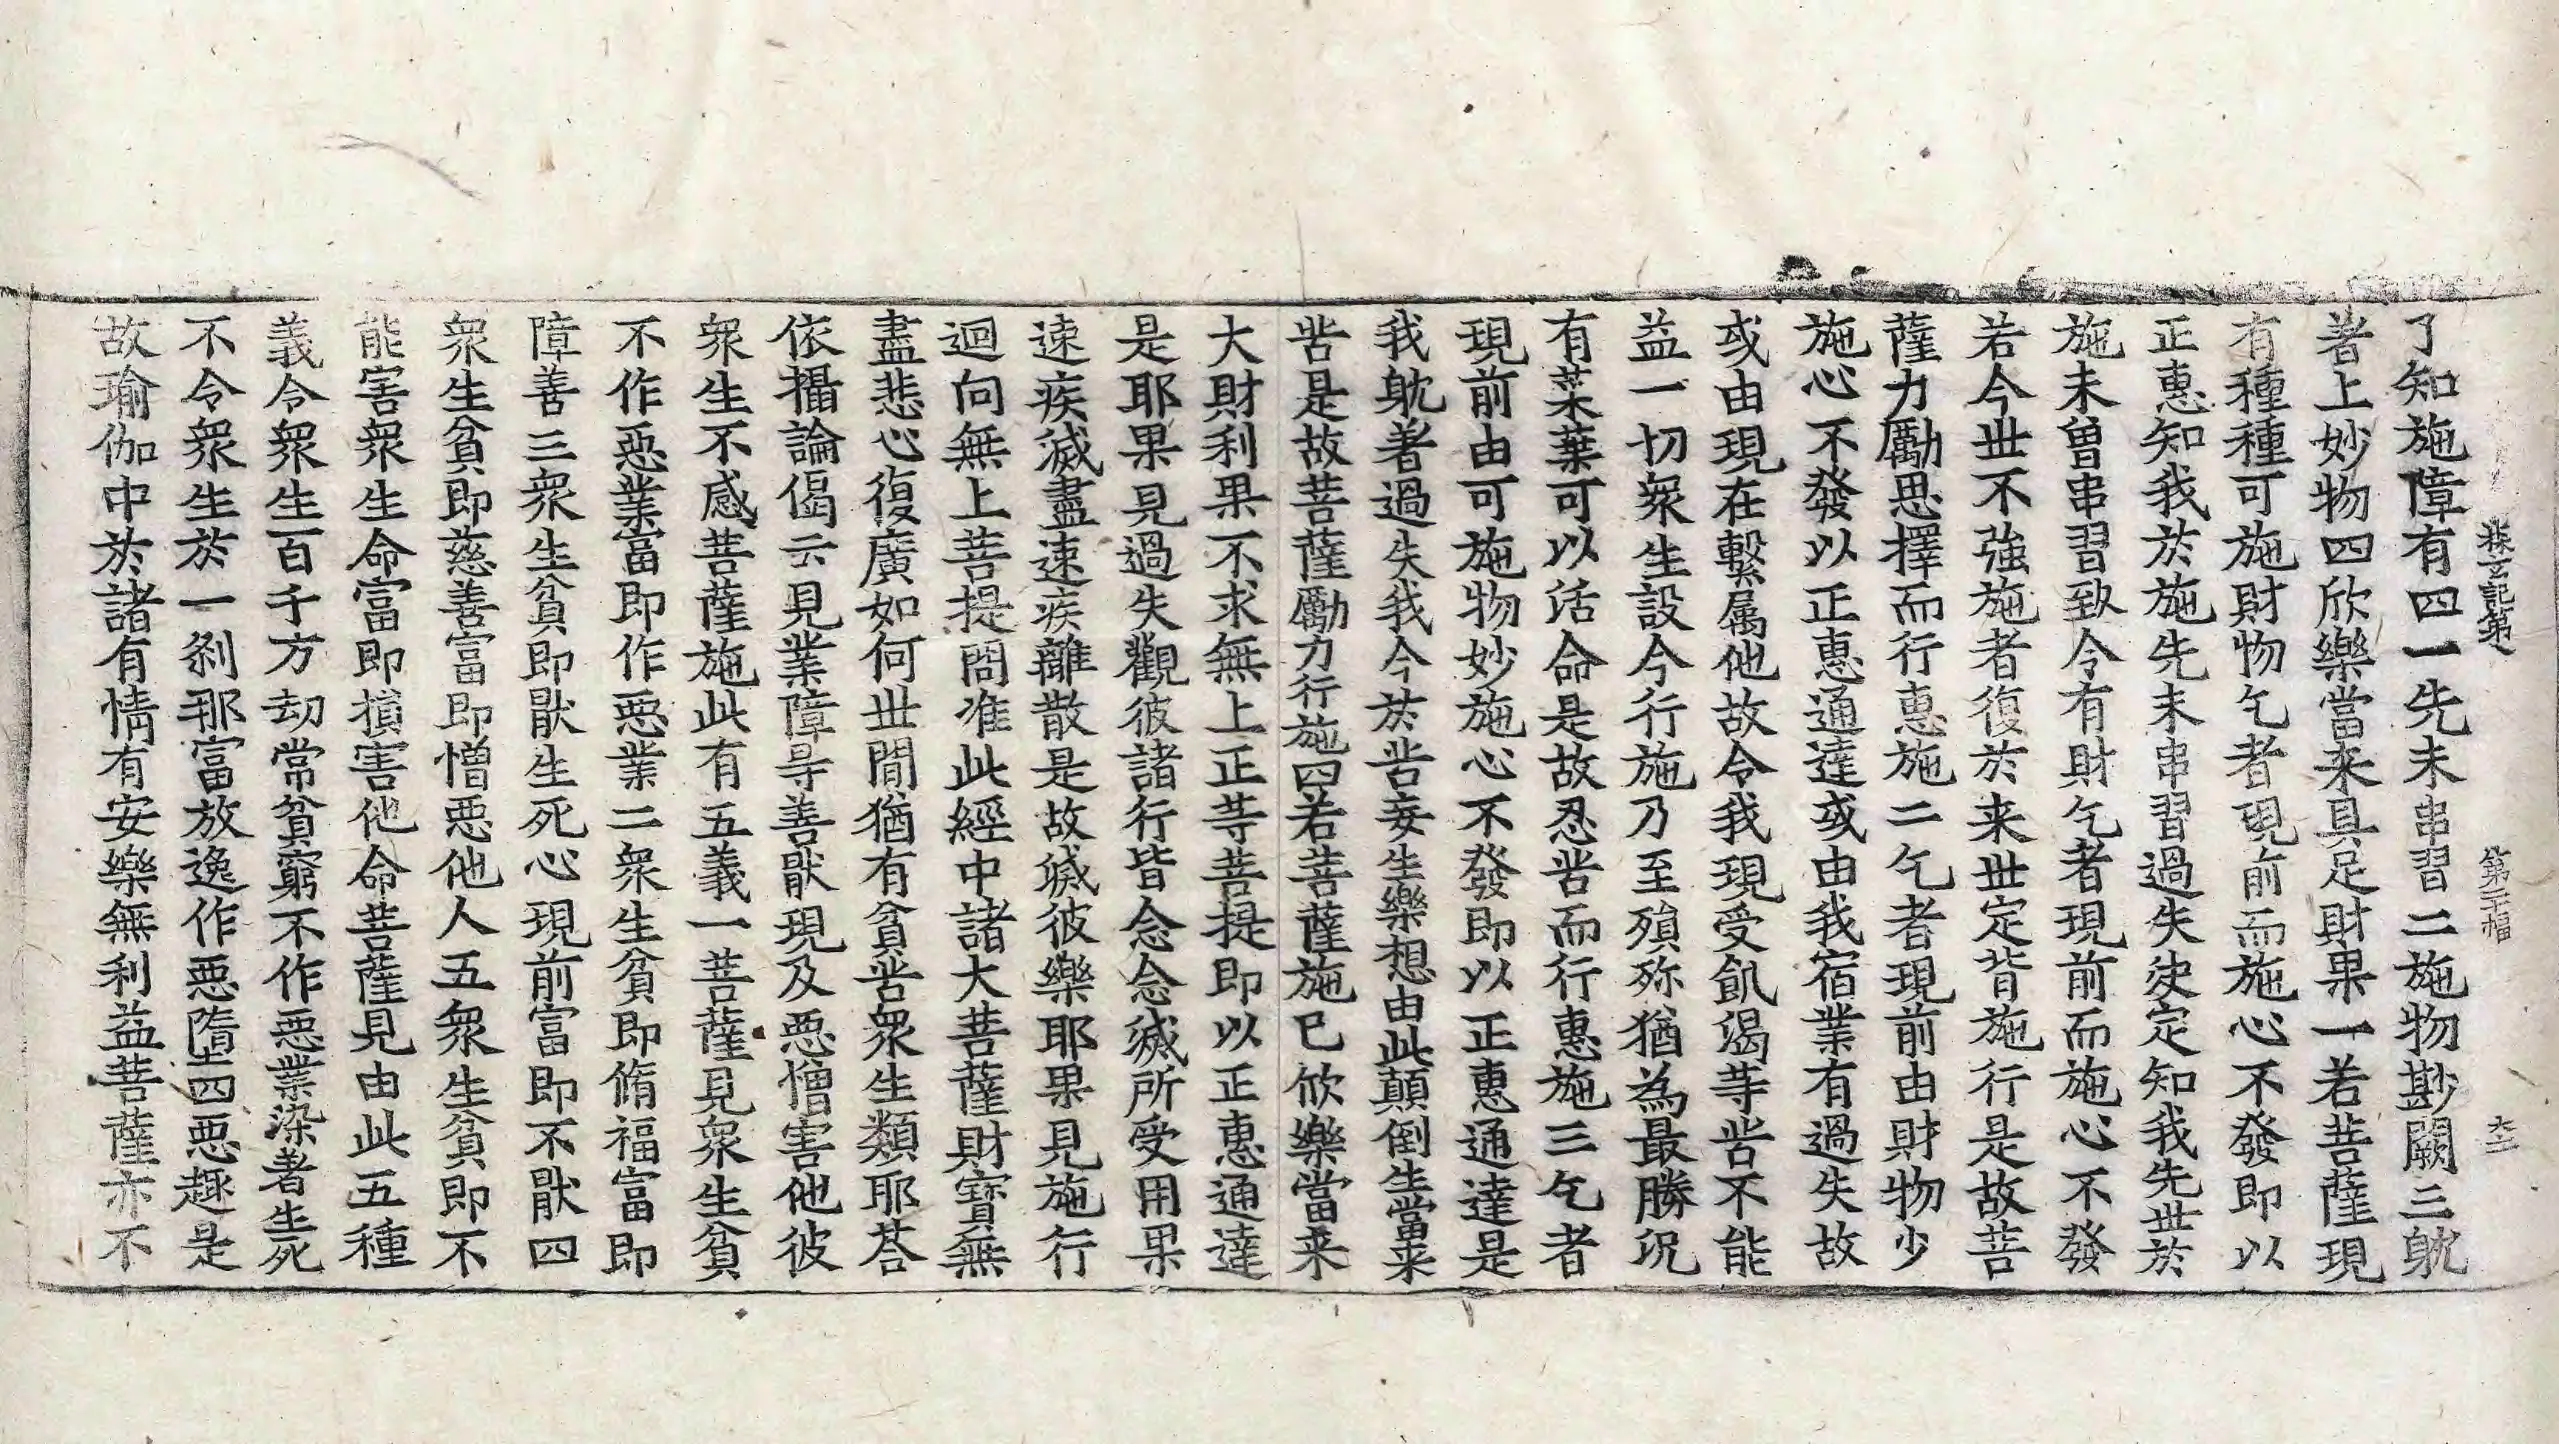 了知施障有四一先未串習二施物尠闕三躭
著上妙物四欣樂當来具足財果一若菩薩現
有種種可施財物乞者現前而施心不發即以
正惠知我於施先未串習過失決定知我先世於
施未曽串習致令有財乞者現前而施心不發
若今世不強施者復於来世定背施行是故菩
薩力勵思擇而行惠施二乞者現前由財物少
施心不發以正惠通達或由我宿業有過失故
或由現在繫属他故令我現受飢渴䓁苦不能
益一切衆生設今行施乃至殞歿猶為最勝況
有菜葉可以活命是故忍苦而行惠施三乞者
現前由可施物妙施心不發即以正惠通達是
我躭著過失我今於苦妄生樂想由此顛倒生當来
苦是故菩薩勵力行施四若菩薩施已欣樂當来
大財利果不求無上正䓁菩提即以正惠通達
是耶果見過失觀彼諸行皆念念滅所受用果
速疾滅盡速疾離散是故滅彼樂耶果見施行
迴向無上菩提問准此經中諸大菩薩財寳無
盡悲心復廣如何世間猶有貧苦衆生類耶荅
依攝論偈云見業障㝵善猒現及惡憎害他彼
衆生不感菩薩施此有五義一菩薩見衆生貧
不作惡業富即作惡業二衆生貧即脩福富即
障善三衆生貧即猒生死心現前富即不猒四
衆生貧即慈善富即憎惡他人五衆生貧即不
能害衆生命富即損害他命菩薩見由此五種
義令衆生百千方劫常貧窮不作惡業染著生死
不令衆生於一刹那富放逸作惡墮四惡趣是
故瑜伽中於諸有情有安樂無利益菩薩亦不